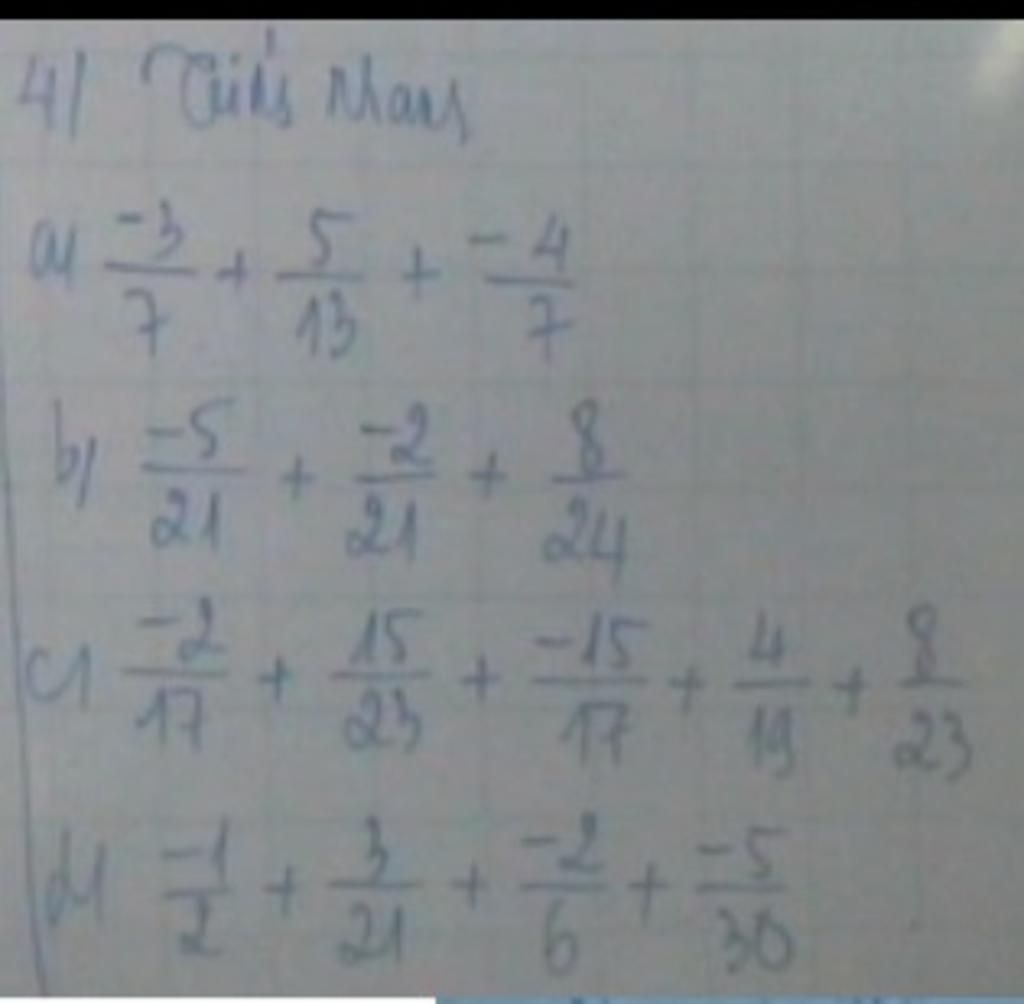 4) Tính nhanh
a) -3/7 + 5/13 + -4/7
b) -5/21 + -2/21 + 8/24
c) -2/17 + 15/23 + -15/17 + 4/19 + 8/23
d) -1/2 + 3/21 + -2/6 + -5/30